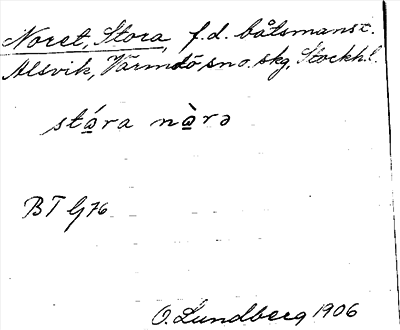 Noret, Stora, f.d. båtsmanst.
Alsvik, Värmdö sno. skg, Stockh.l.
stá̱ra nà̱rə
BT G76
O. Lundberg 1906